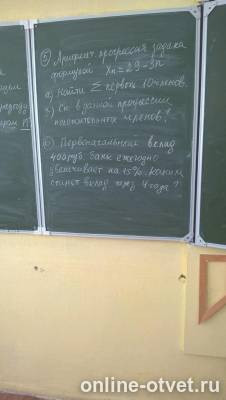 ⑤ Арифмет. прогрессия задана
формулой Xn = 29-3n
а) Найти Σ первых 10 членов.
б) Ск. в данной прогрессии
положительных членов?
⑥ Первоначальный вклад
400 руб. банк ежегодно
увеличивает на 15%. Каким
станет вклад через 4 года?
online-otvet.ru